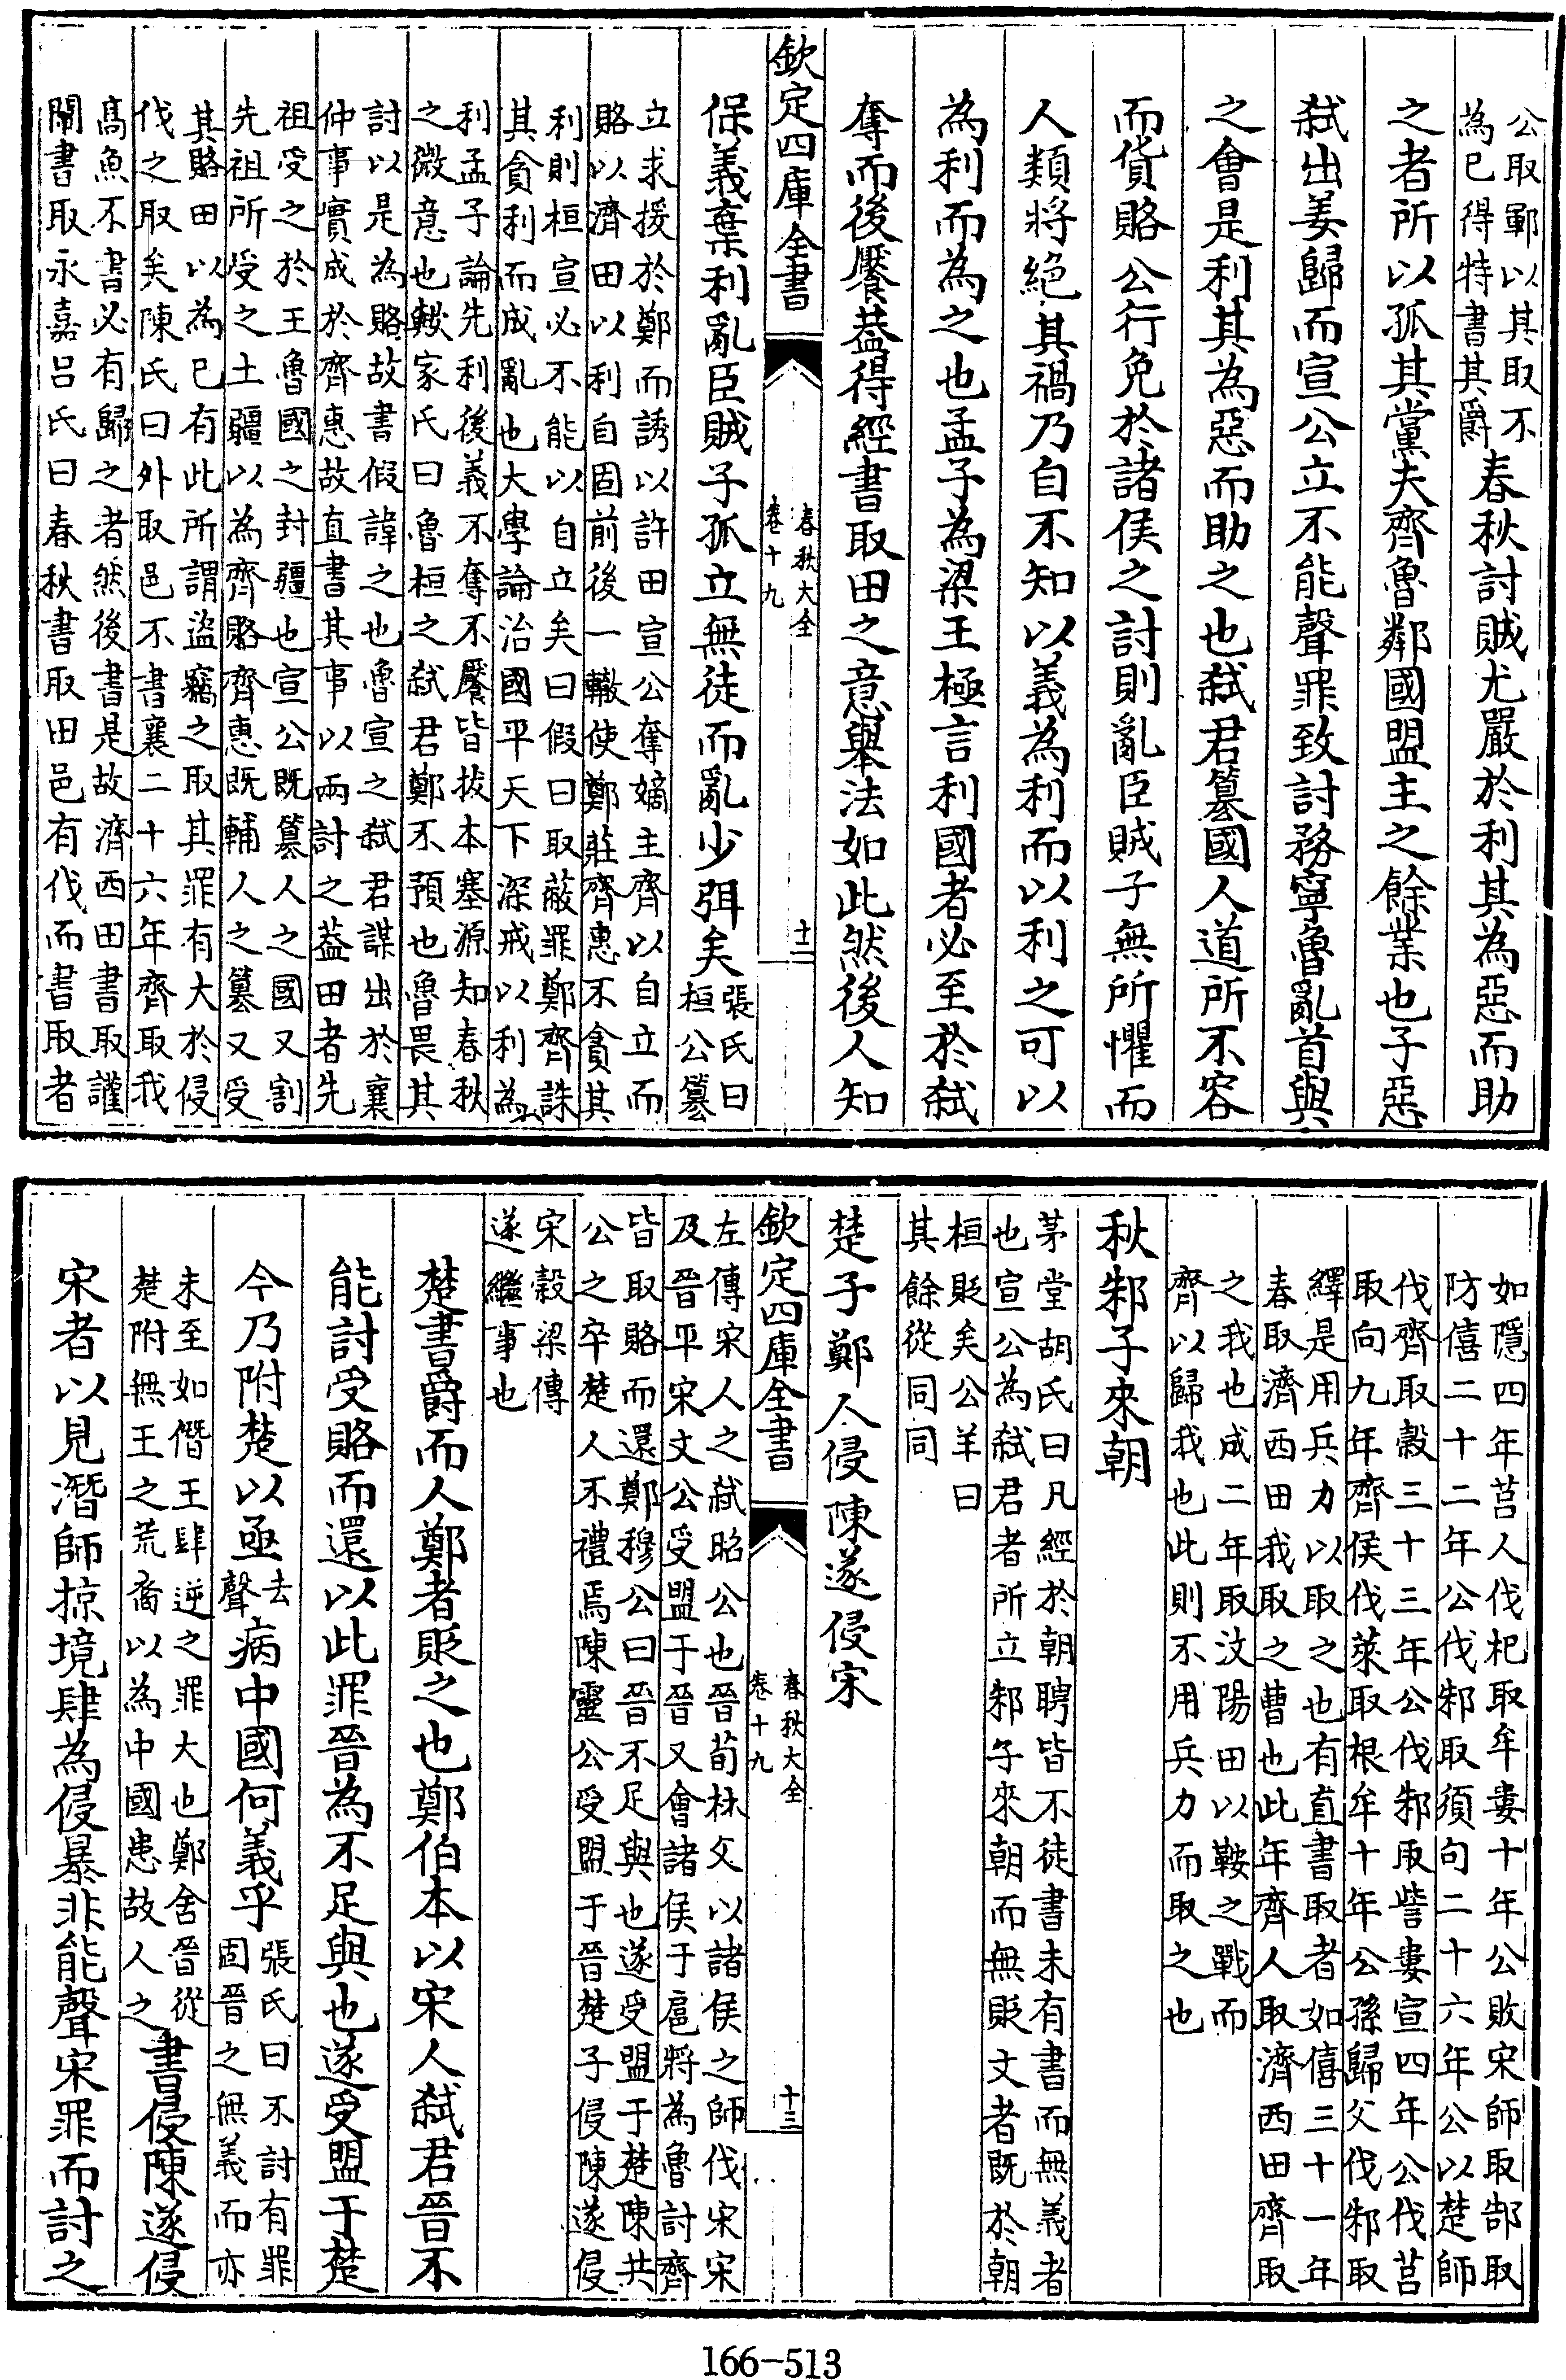 公取鄆以其取不
為已得特書其爵
春秋討賊尤嚴於利其為惡而助
之者所以孤其黨夫齊魯鄰國盟主之餘業也子惡
弑出姜歸而宣公立不能聲罪致討務寧魯亂首與
之會是利其為惡而助之也弑君篡國人道所不容
而貨賂公行免於諸侯之討則亂臣賊子無所懼而
人類將絕其禍乃自不知以義為利而以利之可以
為利而為之也孟子為梁王極言利國者必至於弑
奪而後饜葢得經書取田之意舉法如此然後人知
欽定四庫全書
春秋大全
卷十九
十二
保義棄利亂臣賊子孤立無徒而亂少弭矣
張氏曰
桓公篡
立求援於鄭而誘以許田宣公奪嫡主齊以自立而
賂以濟田以利自固前後一轍使鄭莊齊惠不貪其
利則桓宣必不能以自立矣曰假曰取蔽罪鄭齊誅
其貪利而成亂也大學論治國平天下深戒以利為
利孟子論先利後義不奪不饜皆拔本塞源知春秋
之微意也歟家氏曰魯桓之弑君鄭不預也魯畏其
討以是為賂故書假諱之也魯宣之弑君謀出於襄
仲事實成於齊惠故直書其事以兩討之葢田者先
祖受之於王魯國之封疆也宣公既篡人之國又割
先祖所受之土疆以為齊賂齊惠既輔人之篡又受
其賂田以為已有此所謂盜竊之取其罪有大於侵
伐之取矣陳氏曰外取邑不書襄二十六年齊取我
髙魚不書必有歸之者然後書是故濟西田書取讙
闡書取永嘉呂氏曰春秋書取田邑有伐而書取者
如隱四年莒人伐杞取牟婁十年公敗宋師取郜取
防僖二十二年公伐邾取須句二十六年公以楚師
伐齊取穀三十三年公伐邾取訾婁宣四年公伐莒
取向九年齊侯伐萊取根牟十年公孫歸父伐邾取
繹是用兵力以取之也有直書取者如僖三十一年
春取濟西田我取之曹也此年齊人取濟西田齊取
之我也成二年取汶陽田以鞍之戰而
齊以歸我也此則不用兵力而取之也
秋邾子來朝
茅堂胡氏曰凡經於朝聘皆不徒書未有書而無義者
也宣公為弑君者所立邾子來朝而無貶文者既於朝
桓貶矣公羊曰
其餘從同同
楚子鄭人侵陳遂侵宋
欽定四庫全書
春秋大全
卷十九
十三
左傳宋人之弑昭公也晉荀林父以諸侯之師伐宋宋
及晉平宋文公受盟于晉又會諸侯于扈將為魯討齊
皆取賂而還鄭穆公曰晉不足與也遂受盟于楚陳共
公之卒楚人不禮焉陳靈公受盟于晉楚子侵陳遂侵
宋穀梁傳
遂繼事也
楚書爵而人鄭者貶之也鄭伯本以宋人弑君晉不
能討受賂而還以此罪晉為不足與也遂受盟于楚
今乃附楚以亟
去
聲
病中國何義乎
張氏曰不討有罪
固晉之無義而亦
未至如僭王肆逆之罪大也鄭舍晉從
楚附無王之荒裔以為中國患故人之
書侵陳遂侵
宋者以見潛師掠境肆為侵暴非能聲宋罪而討之
166-513